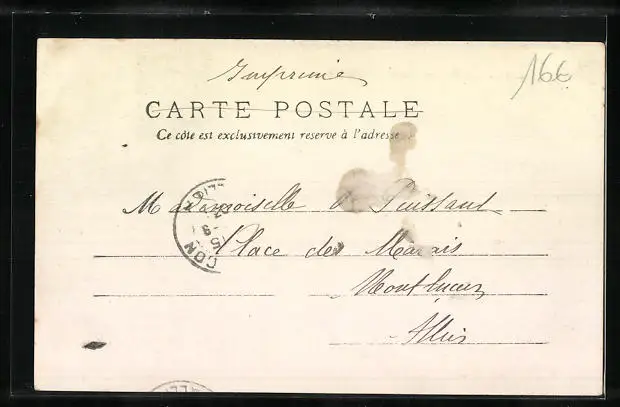 Imprimé
166
CARTE POSTALE
Ce côté est exclusivement réservé à l'adresse
Mademoiselle Puissant
Place des Marais
Montluçon
Allier